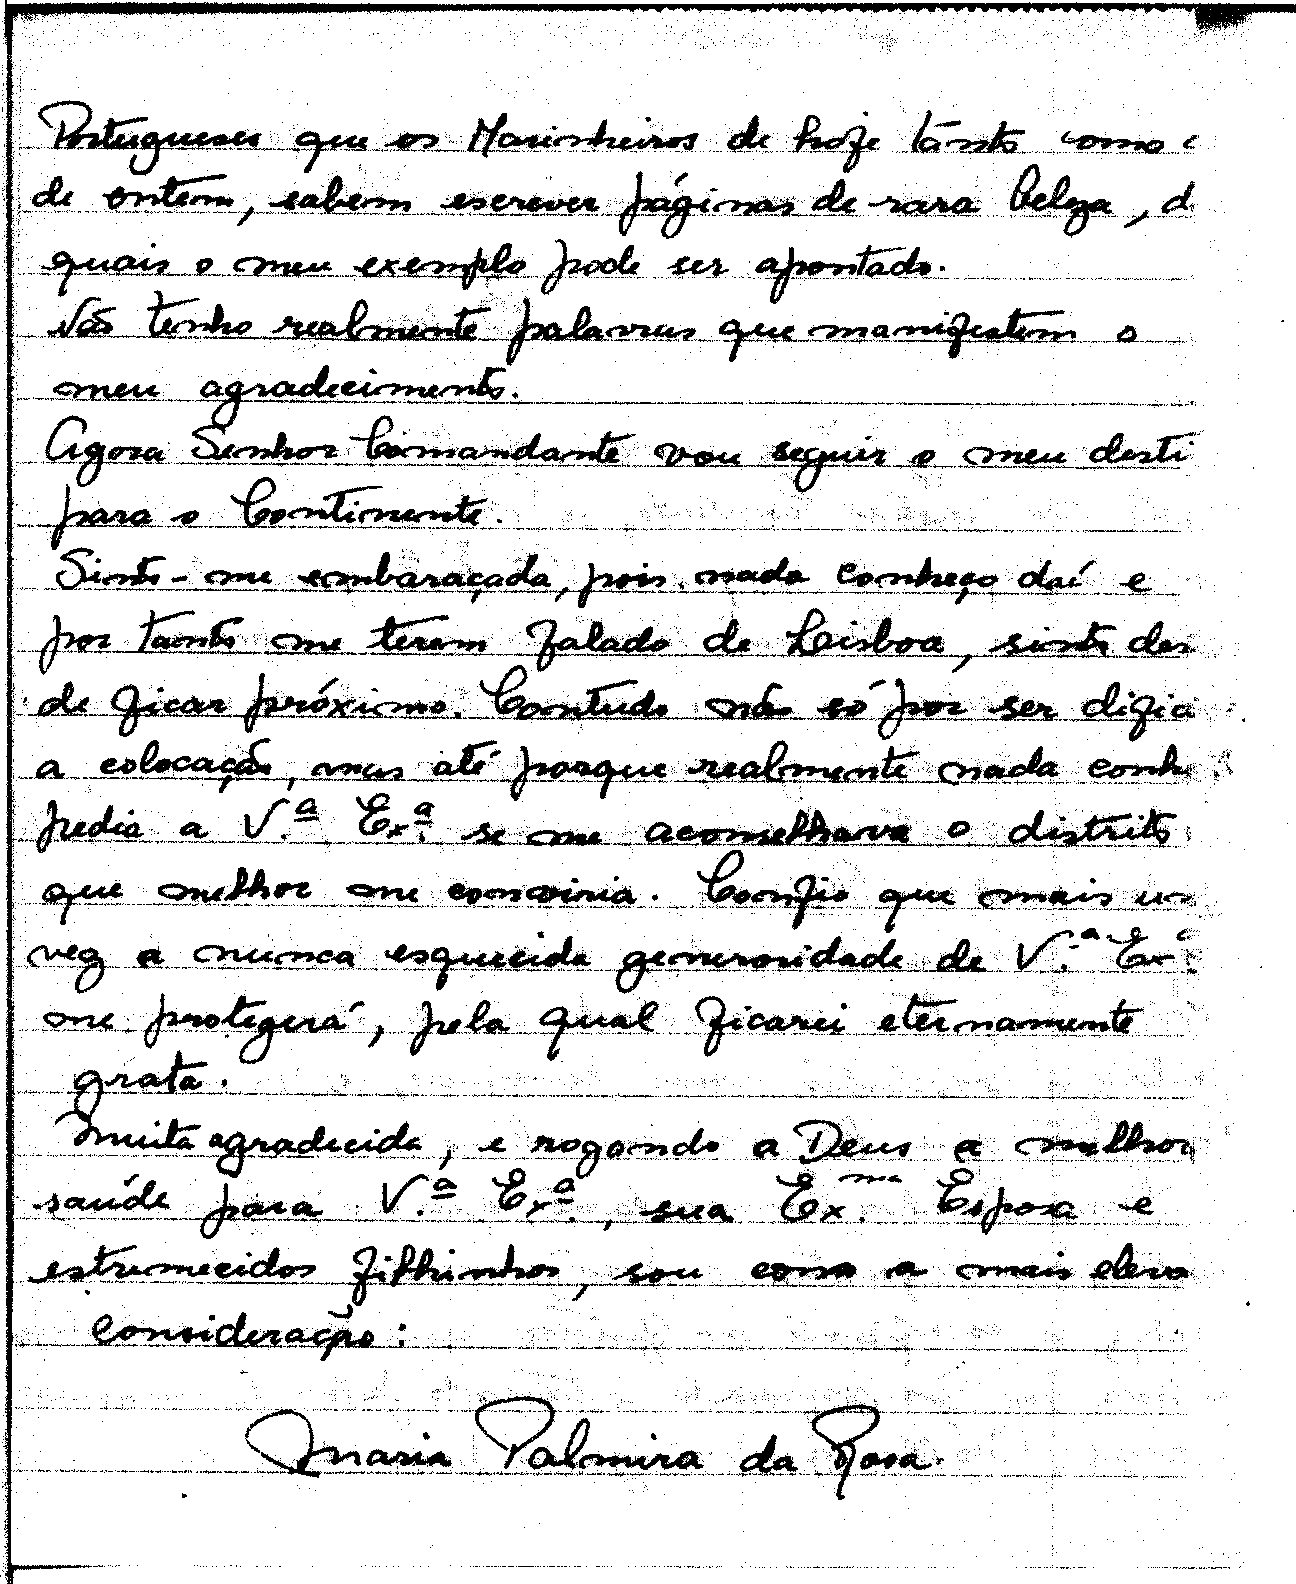 Portugueses que os Marinheiros de hoje tanto como
de ontem, sabem escrever páginas de rara beleza, d
quais o meu exemplo pode ser apontado.
Não tenho realmente palavras que manifestem o
meu agradecimento.
Agora Senhor Comandante vou seguir o meu desti
para o Continente.
Sinto-me embaraçada, pois nada conheço daí e
por tanto me terem falado de Lisboa, sinto des
de ficar próximo. Contudo não só por ser difíci
a colocação, mas até porque realmente nada conh
pedia a V.ª Ex.ª se me aconselhava o distrito
que melhor me conviria. Confio que mais um
vez a nunca esquecida generosidade de V.ª Ex.ª
me protegerá, pela qual ficarei eternamente
grata.
Muita agradecida, e rogando a Deus a melhor
saúde para V.ª Ex.ª, sua Ex.ma Esposa e
estremecidos filhinhos, sou como a mais eleva
consideração:
Maria Palmira da Rosa